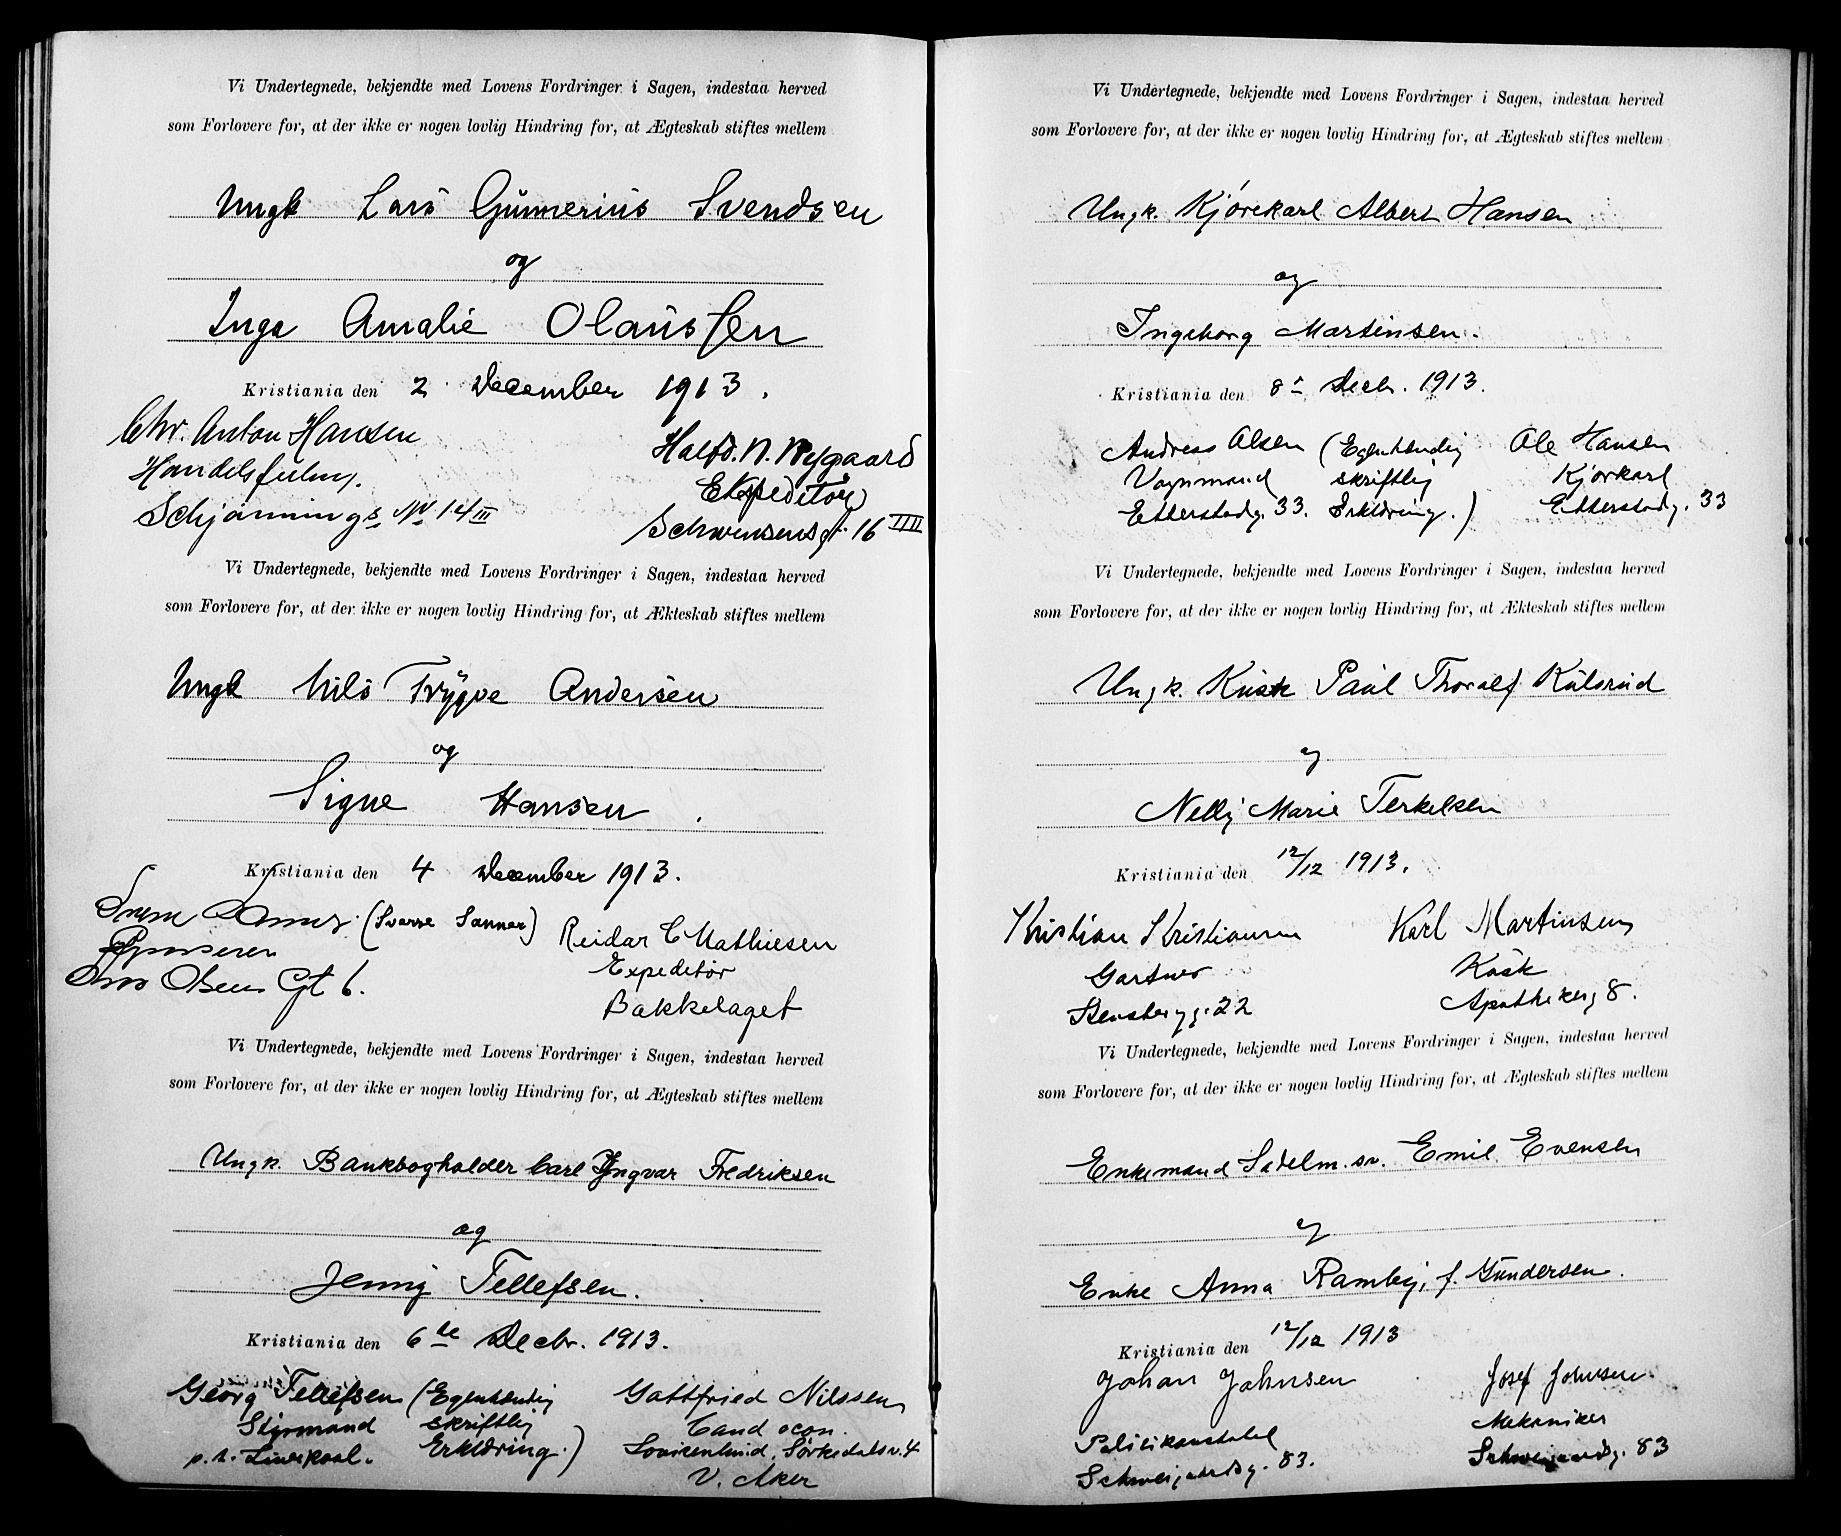 Vi Undertegnede, bekjendte med Lovens Fordringer i Sagen, indestaa herved
som Forlovere for, at der ikke er nogen lovlig Hindring for, at Ægteskab stiftes mellem
Ungk Lars Gunnerius Svendsen
og
Inga Amalie Olaussen
Kristiania den 2 December 1913.
Chr. Anton Hansen
Halfd. N. Nygaard
Handelsfuldm.
Ekspeditör
Schjønningsg 14 III
Schwensensgt. 16 IIII
Vi Undertegnede, bekjendte med Lovens Fordringer i Sagen, indestaa herved
som Forlovere for, at der ikke er nogen lovlig Hindring for, at Ækteskab stiftes mellem
Ungk Nils Trygve Andersen
og
Signe Hansen.
Kristiania den 4 December 1913.
(Sverre Sanner) Reidar C Mathiesen
Expeditör
Olsens Gt 6.
Bakkelaget
Vi Undertegnede, bekjendte med Lovens Fordringer i Sagen, indestaa herved
som Forlovere for, at der ikke er nogen lovlig Hindring for, at Ægteskab stiftes mellem
Ungk. Bankbogholder Carl Yngvar Fredriksen
og
Jenny Tellefsen.
Kristiania den 6de Decbr. 1913.
Georg Tellefsen (Egenhændig Gottfried Nilssen
Styrmand skriftlig Cand oecon.
Erklæring.) Sørkedalsv. 4
V. Aker
Vi Undertegnede, bekjendte med Lovens Fordringer i Sagen, indestaa herved
som Forlovere for, at der ikke er nogen lovlig Hindring for, at Ægteskab stiftes mellem
Ungk. Kjørekarl Albert Hansen
og
Ingeborg Martinsen.
Kristiania den 8de Decbr. 1913.
Andreas Olsen (Egenhændig Ole Hansen
Vognmand skriftlig Kjørkarl
Etterstadg. 33. Erklæring.) Etterstadg. 33
Vi Undertegnede, bekjendte med Lovens Fordringer i Sagen, indestaa herved
som Forlovere for, at der ikke er nogen lovlig Hindring for, at Ækteskab stiftes mellem
Ungk. Kusk Paul Thoralf Kulsrud
og
Nelly Marie Terkelsen
Kristiania den 12/12 1913.
Kristian Kristiansen Karl Martinsen
Gartner Kusk
Stensbergg. 22 Apothekerg 8.
Vi Undertegnede, bekjendte med Lovens Fordringer i Sagen, indestaa herved
som Forlovere for, at der ikke er nogen lovlig Hindring for, at Ægteskab stiftes mellem
Enkemand Sadelm.sv. Emil Evensen
og
Enke Anna Ramby, f. Gundersen.
Kristiania den 12/12 1913
Johan Johnsen Josef Johnsen
Politikonstabel Mekaniker
Schweigaardsg. 83. Schweigaardsg. 83